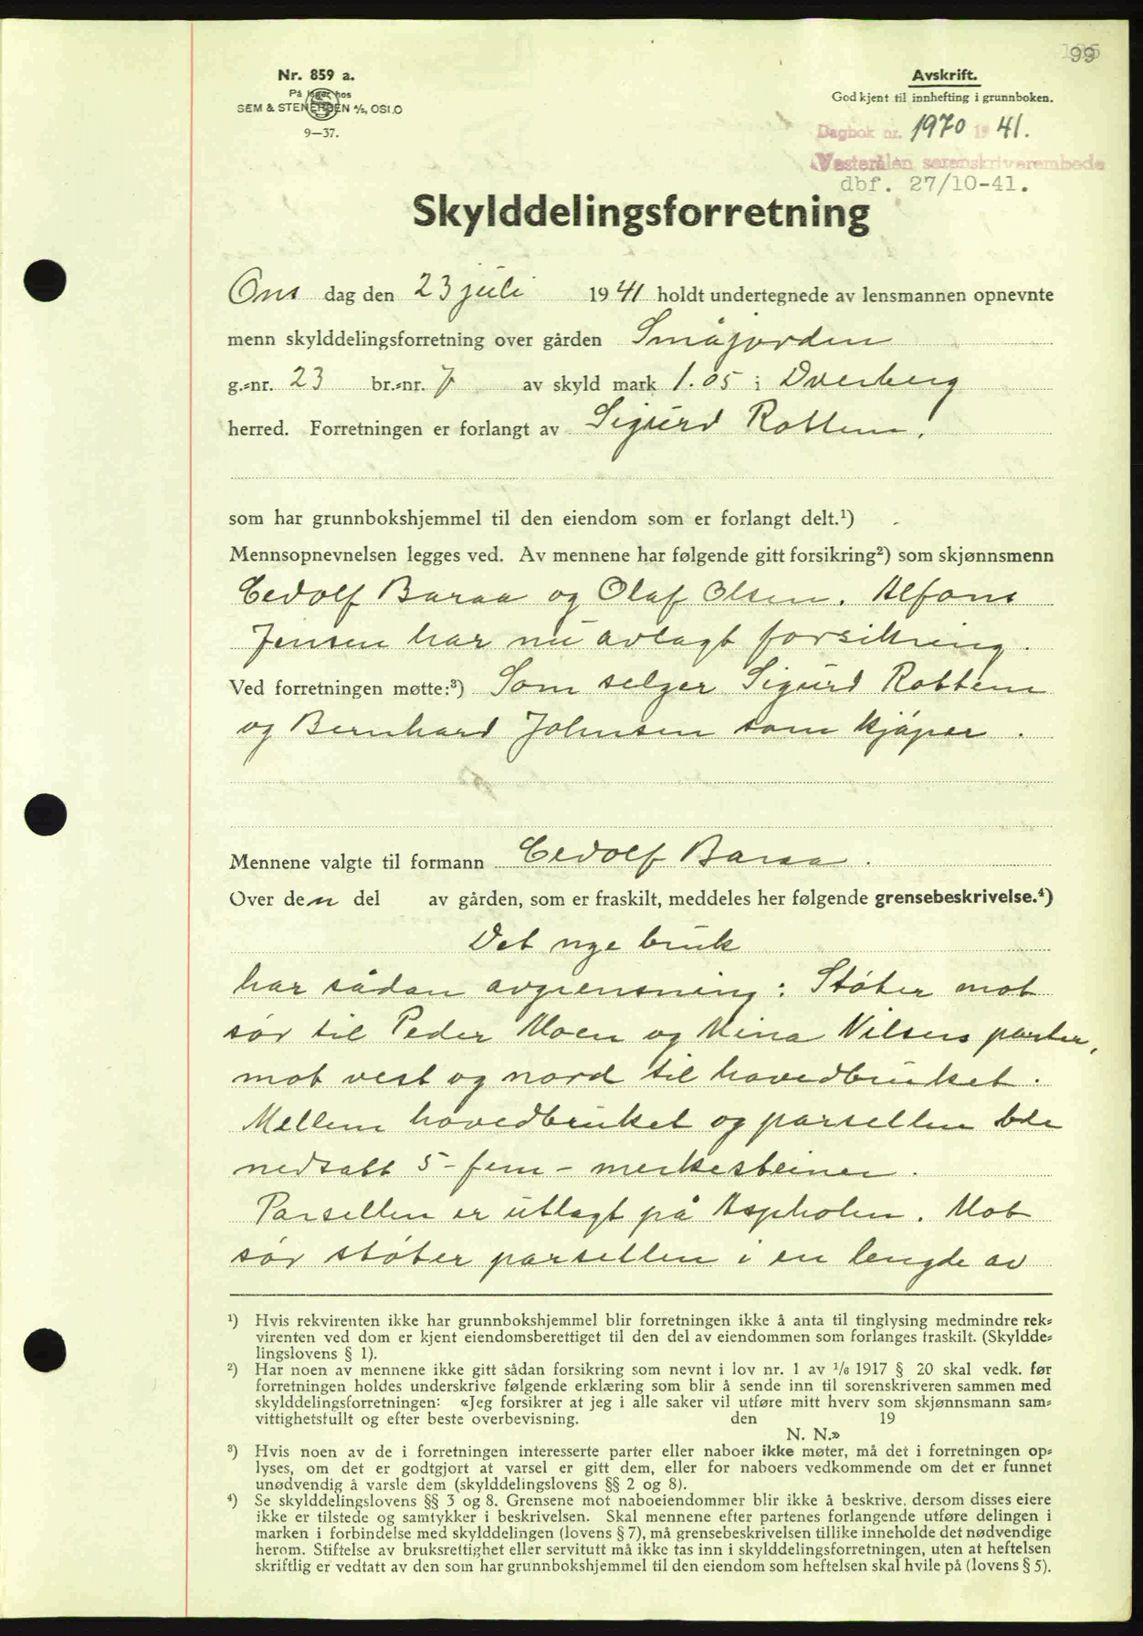 99
Nr. 859 a.
På lager hos
SEM & STENERSEN A/S, OSLO
9-37.
Avskrift.
Godkjent til innhefting i grunnboken.
Dagbok nr. 1970 1941.
Vesterålen sorenskriverembede
dbf. 27/10-41.
Skylddelingsforretning
Ons dag den 23 juli 1941 holdt undertegnede av lensmannen opnevnte
menn skylddelingsforretning over gården Småjorden
g.=nr. 23 br.=nr. 7 av skyld mark 1.05 i Dverberg
herred. Forretningen er forlangt av Sigurd Rottem.
som har grunnbokshjemmel til den eiendom som er forlangt delt.¹)
Mennsopnevnelsen legges ved. Av mennene har følgende gitt forsikring²) som skjønnsmenn
Cedolf Baraa og Olaf Olsen. Alfons
Jensen har nu avlagt forsikring.
Ved forretningen møtte:³) Som selger Sigurd Rottem
og Bernhard Johnsen som kjøper.
Mennene valgte til formann Cedolf Baraa.
Over den del av gården, som er fraskilt, meddeles her følgende grensebeskrivelse.⁴)
Det nye bruk
har sådan avgrensning: Støter mot
sør til Peder Moen og Mina Nilsens parter,
mot vest og nord til hovedbruket.
Mellem hovedbruket og parsellen ble
nedsatt 5 - fem - merkesteiner.
Parsellen er utlagt på Aspholen. Mot
sør støter parsellen i en lengde av
¹) Hvis rekvirenten ikke har grunnbokshjemmel blir forretningen ikke å anta til tinglysing medmindre rek=
virenten ved dom er kjent eiendomsberettiget til den del av eiendommen som forlanges fraskilt. (Skyldde=
lingslovens § 1).
²) Har noen av mennene ikke gitt sådan forsikring som nevnt i lov nr. 1 av 1/6 1917 § 20 skal vedk. før
forretningen holdes underskrive følgende erklæring som blir å sende inn til sorenskriveren sammen med
skylddelingsforretningen: «Jeg forsikrer at jeg i alle saker vil utføre mitt hverv som skjønnsmann sam=
vittighetsfullt og efter beste overbevisning. den 19
N. N.»
³) Hvis noen av de i forretningen interesserte parter eller naboer ikke møter, må det i forretningen op=
lyses, om det er godtgjort at varsel er gitt dem, eller for naboers vedkommende om det er funnet
unødvendig å varsle dem (skylddelingslovens §§ 2 og 8).
⁴) Se skylddelingslovens §§ 3 og 8. Grensene mot naboeiendommer blir ikke å beskrive, dersom disses eiere
ikke er tilstede og samtykker i beskrivelsen. Skal mennene efter partenes forlangende utføre delingen i
marken i forbindelse med skylddelingen (lovens § 7), må grensebeskrivelsen tillike inneholde det nødvendige
herom. Stiftelse av bruksrettighet eller servitutt må ikke tas inn i skylddelingsforretningen, uten at heftelsen
skriftlig er vedtatt av den som har grunnbokshjemmel til den eiendom som heftelsen skal hvile på (lovens § 5).